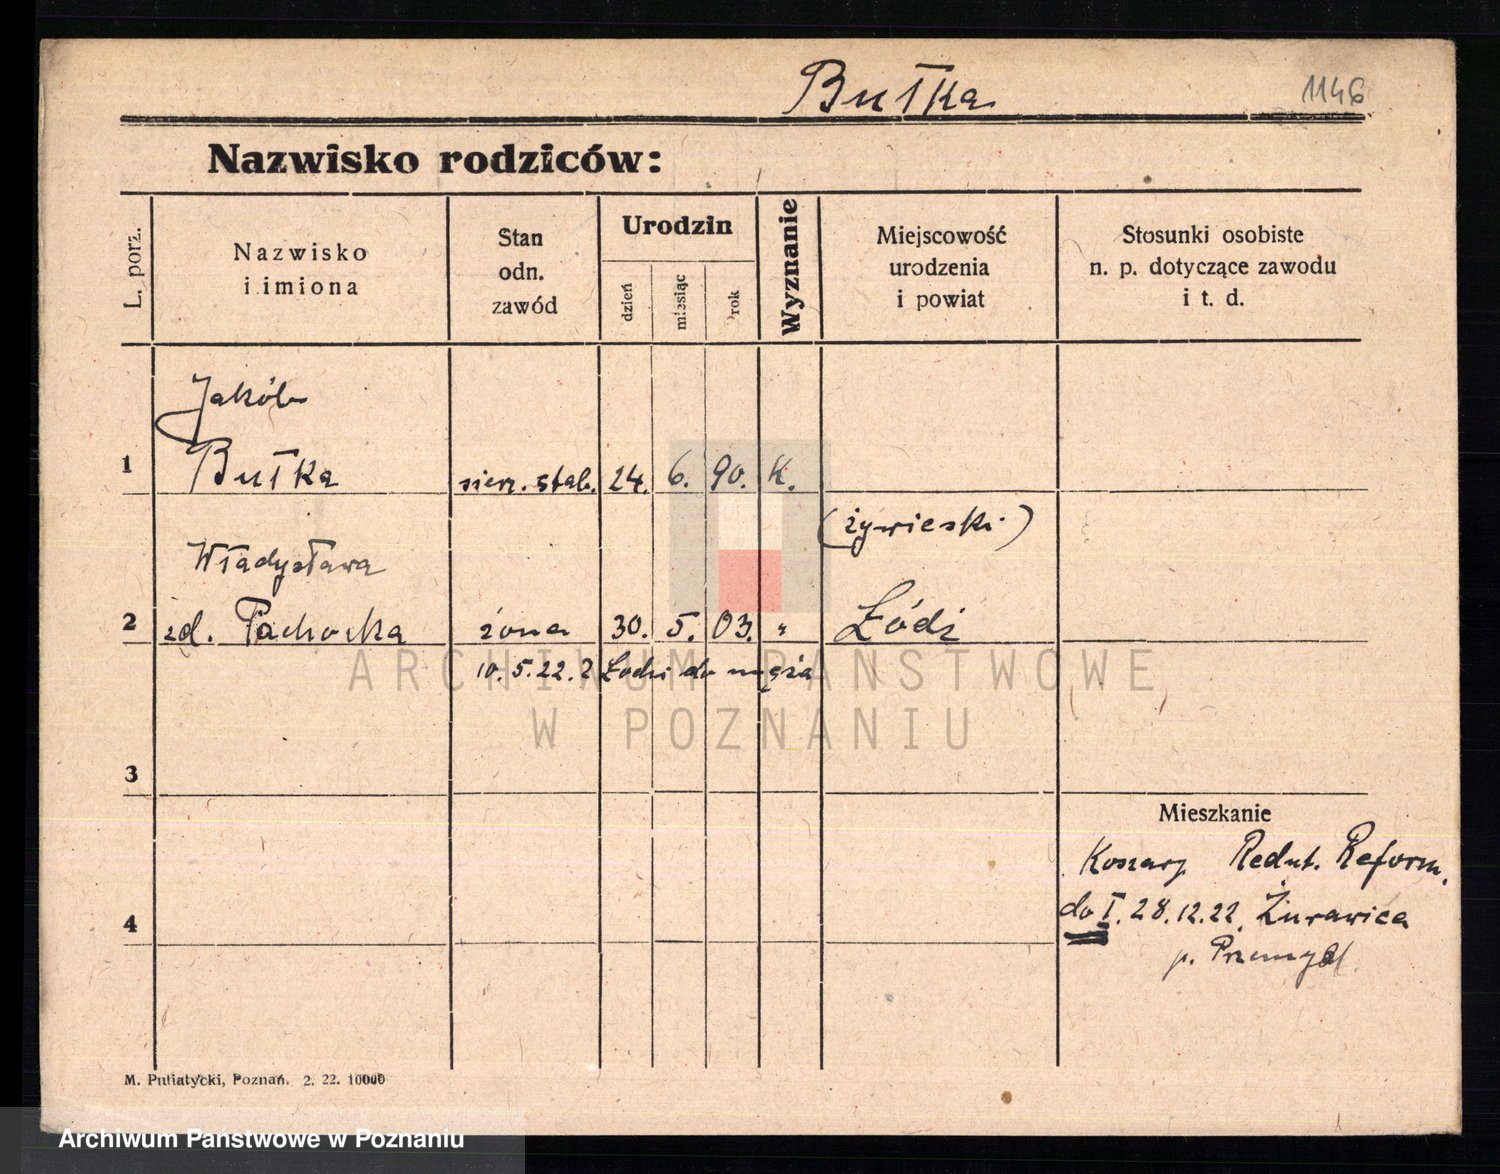 Bułka
1146
Nazwisko rodziców:
L. porz.
Nazwisko
i imiona
Stan
odn.
zawód
Urodzin
dzień
miesiąc
rok
Wyznanie
Miejscowość
urodzenia
i powiat
Stosunki osobiste
n. p. dotyczące zawodu
i t. d.
Jakób
1 Bułka sierz. stab. 24. 6. 90. K.
(żywieski)
Władysława
2 zd. Pachocka żona 30. 5. 03. " Łódź
10.5.22. z Łodzi do męża
ARCHIWUM PAŃSTWOWE
W POZNANIU
3
Mieszkanie
Koszary Redut. Reform.
4 do I. 28.12.22. Żurawica
p. Przemyśl
M. Putiatycki, Poznań. 2. 22. 10000
Archiwum Państwowe w Poznaniu